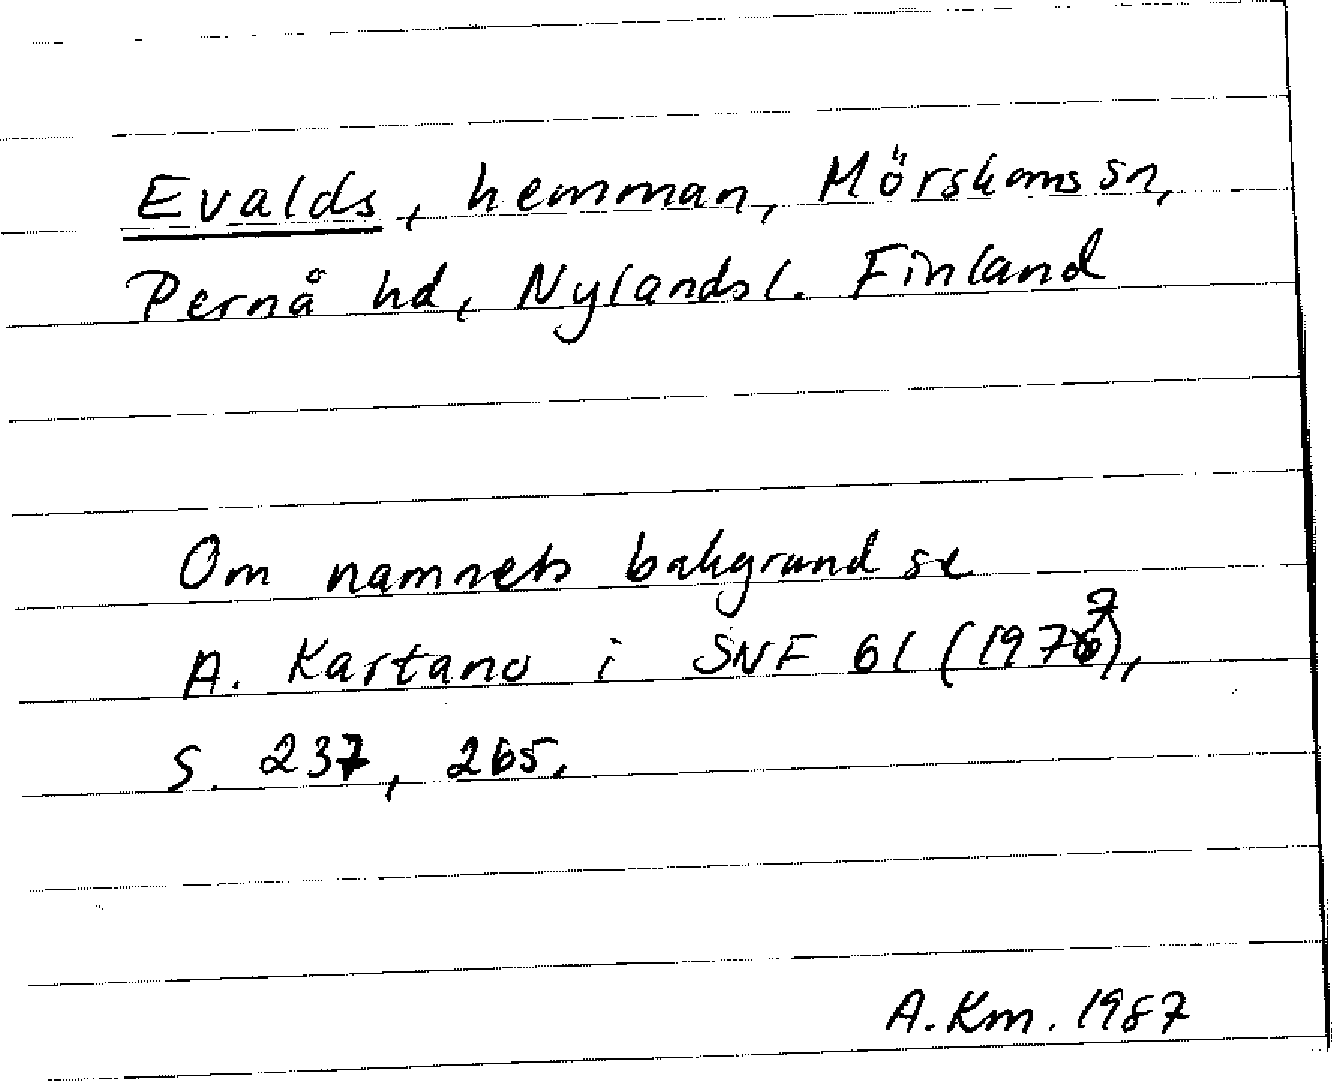 Evalds, hemman, Mörskoms sn,
Pernå hd, Nylands l. Finland
Om namnets bakgrund se
A. Kartano i SNF 61 (1977),
S. 237, 265.
A. Km. 1987